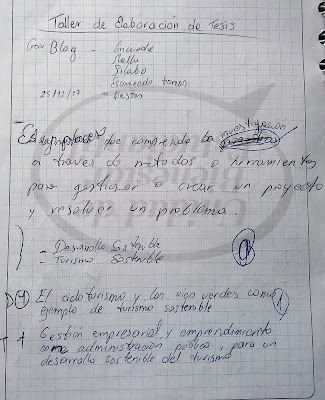 Taller de Elaboración de Tesis
Crear Blog - Encuadre
Sílabo
Escaneado tareas
25/12/17
que comprende la investigación
a través de métodos o herramientas
para gestionar o crear un proyecto
y resolver un problema.
- Desarrollo Sostenible
- Turismo Sostenible
El cicloturismo y las vías verdes como
ejemplo de turismo sostenible
Gestión empresarial y emprendimiento
como administración pública, para un
desarrollo sostenible del turismo